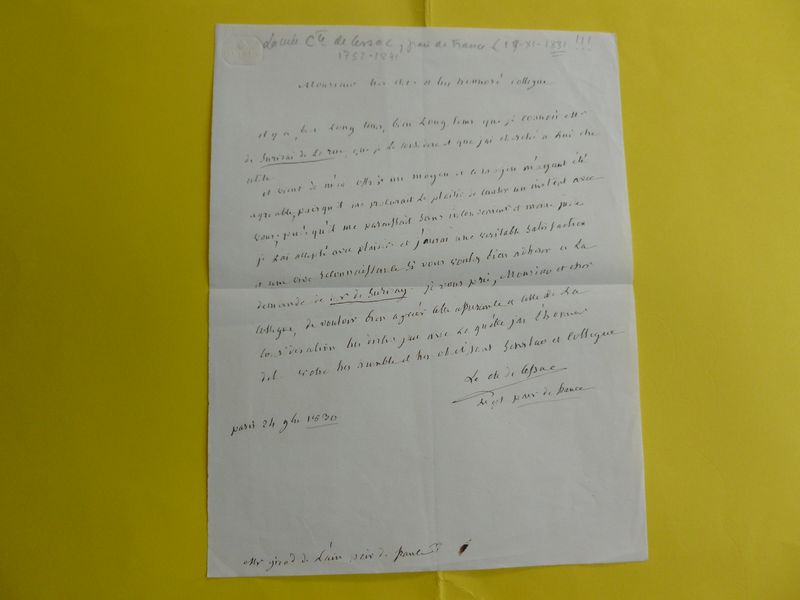 Lacuée Cte de Cessac, pair de France (19-XI-1831 !!!
1752-1841
Monsieur très cher et très honoré collègue
il y a, bien long tems, bien long tems que je connois Mr
de Surirai de La rue, que je le considere et que j'ai cherché a lui être
utile.
il vient de m'en offrir un moyen et ce moyen m'ayant été
agreable, puis qu'il me procurait le plaisir de causer un instant avec
vous, puis qu'il me paraissait sans inconvenient et meme juste
je l'ai accepté avec plaisir et j'aurai une veritable satisfaction
et une vive reconnaissance si vous voulez bien adherer a la
demande de Mr de Suriray. je vous prie, Monsieur et cher
collegue, de vouloir bien agréer cette assurance et celle de la
consideration tres distinguée avec la quelle j'ai l'honneur
d'etre votre tres humble et tres obeissant serviteur et collegue
Le cte de Cessac
pair de france
paris 24 9bre 1830
Mr girod de L'ain pair de france